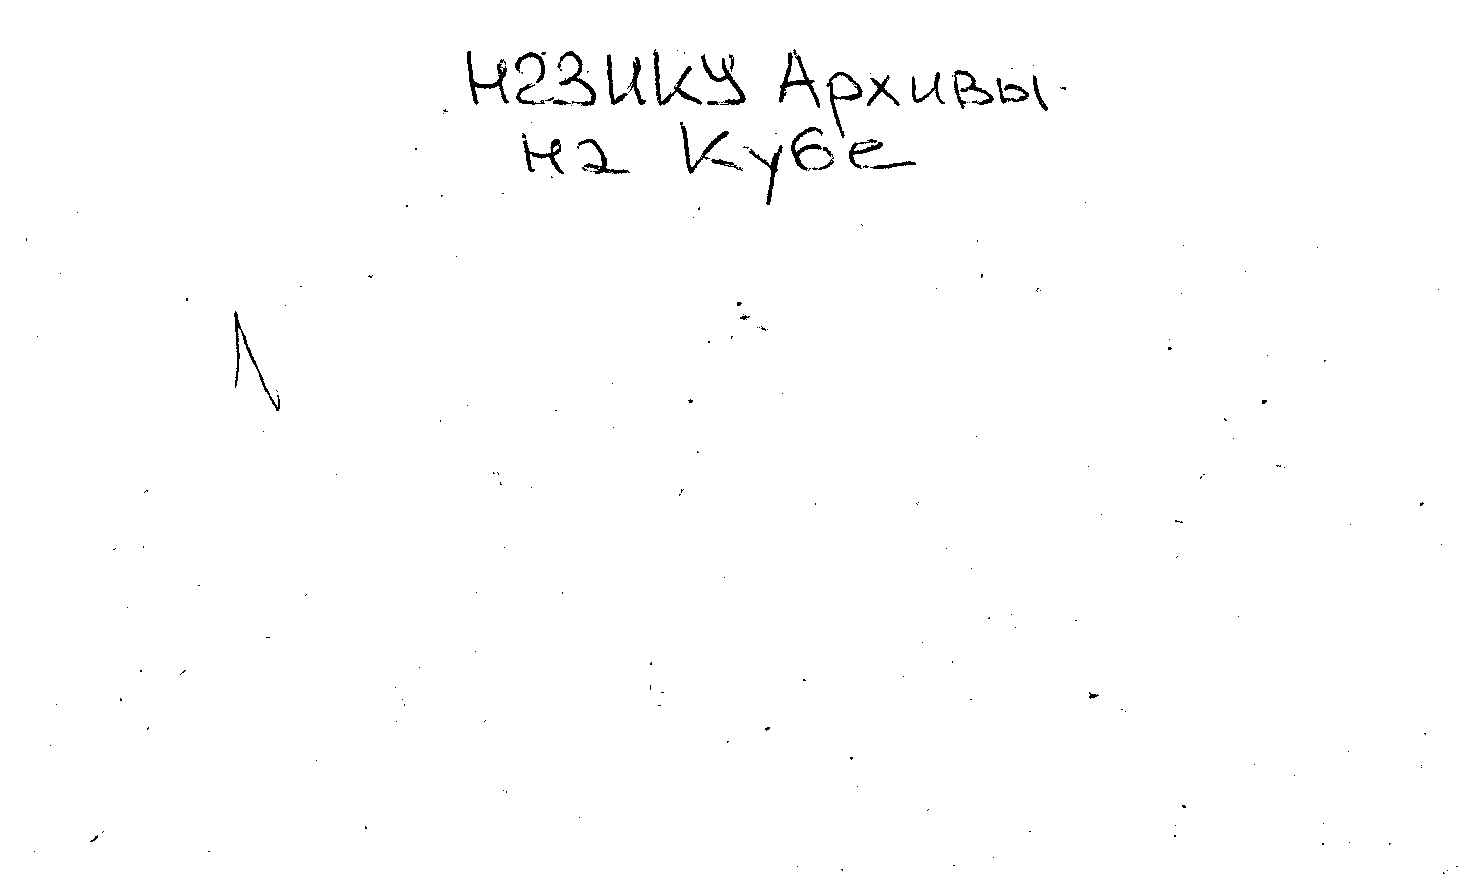 НАЗИКУ Архивы
на Кубе